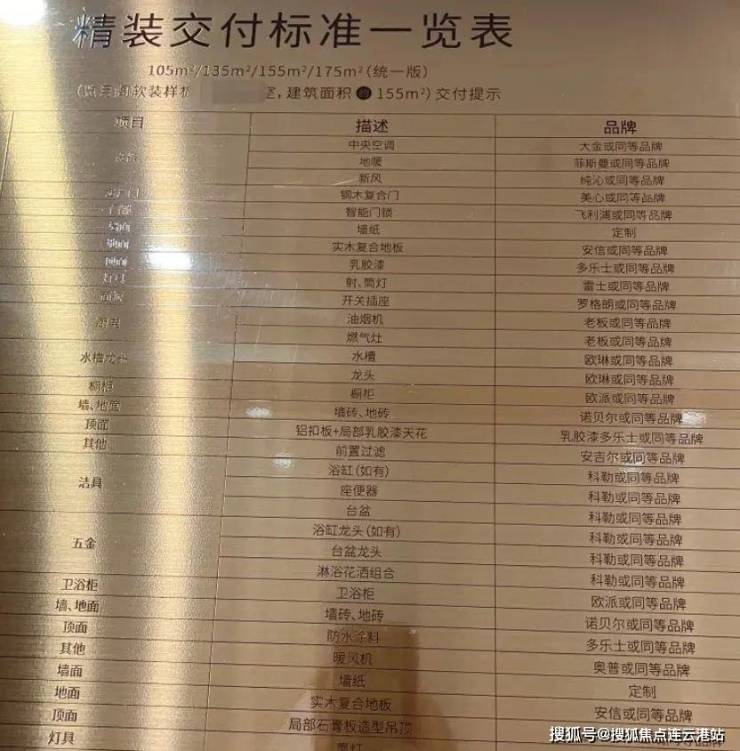 精装交付标准一览表
105m²/135m²/155m²/175m²(统一版)
软装样板 室,建筑面积约155m²)交付提示
项目 描述 品牌
中央空调 大金或同等品牌
地暖 菲斯曼或同等品牌
新风 纯沁或同等品牌
钢木复合门 美心或同等品牌
智能门锁 飞利浦或同等品牌
墙面 墙纸 定制
地面 实木复合地板 安信或同等品牌
顶面 乳胶漆 多乐士或同等品牌
射、筒灯 雷士或同等品牌
开关插座 罗格朗或同等品牌
油烟机 老板或同等品牌
燃气灶 老板或同等品牌
水槽龙头 水槽 欧琳或同等品牌
龙头 欧琳或同等品牌
橱柜 橱柜 欧派或同等品牌
墙、地面 墙砖、地砖 诺贝尔或同等品牌
顶面 铝扣板+局部乳胶漆天花 乳胶漆多乐士或同等品牌
其他 前置过滤 安吉尔或同等品牌
洁具 浴缸(如有) 科勒或同等品牌
座便器 科勒或同等品牌
台盆 科勒或同等品牌
五金 浴缸龙头(如有) 科勒或同等品牌
台盆龙头 科勒或同等品牌
淋浴花洒组合 科勒或同等品牌
卫浴柜 卫浴柜 欧派或同等品牌
墙、地面 墙砖、地砖 诺贝尔或同等品牌
顶面 防水涂料 多乐士或同等品牌
其他 暖风机 奥普或同等品牌
墙面 墙纸 定制
地面 实木复合地板 安信或同等品牌
顶面 局部石膏板造型吊顶
灯具 筒灯
搜狐号@搜狐焦点连云港站